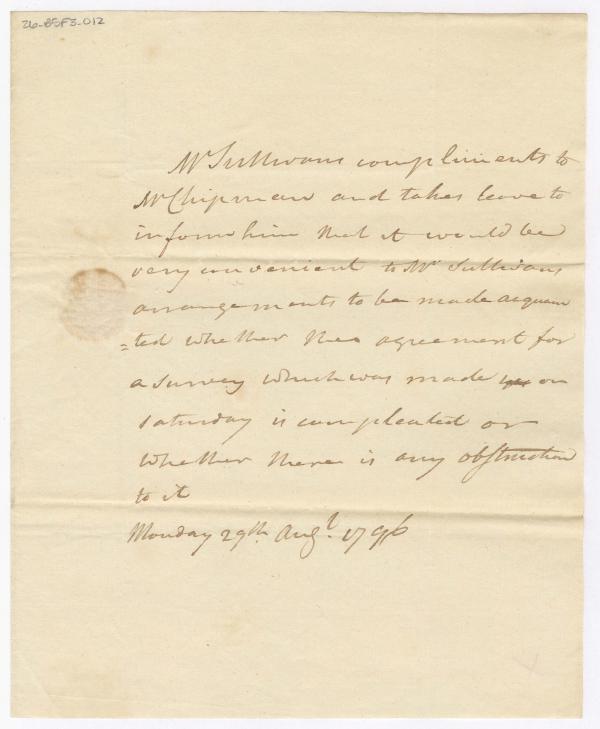 26-BSF3-012
Mr Sullivans compliments to
Mr Chipman and takes leave to
inform him that it would be
very convenient to Mr Sullivans
arrangements to be made acquain
=ted whether the agreement for
a survey which was made on
saturday is compleated or
whether there is any obstruction
to it
Monday 29th. Augt. 1796